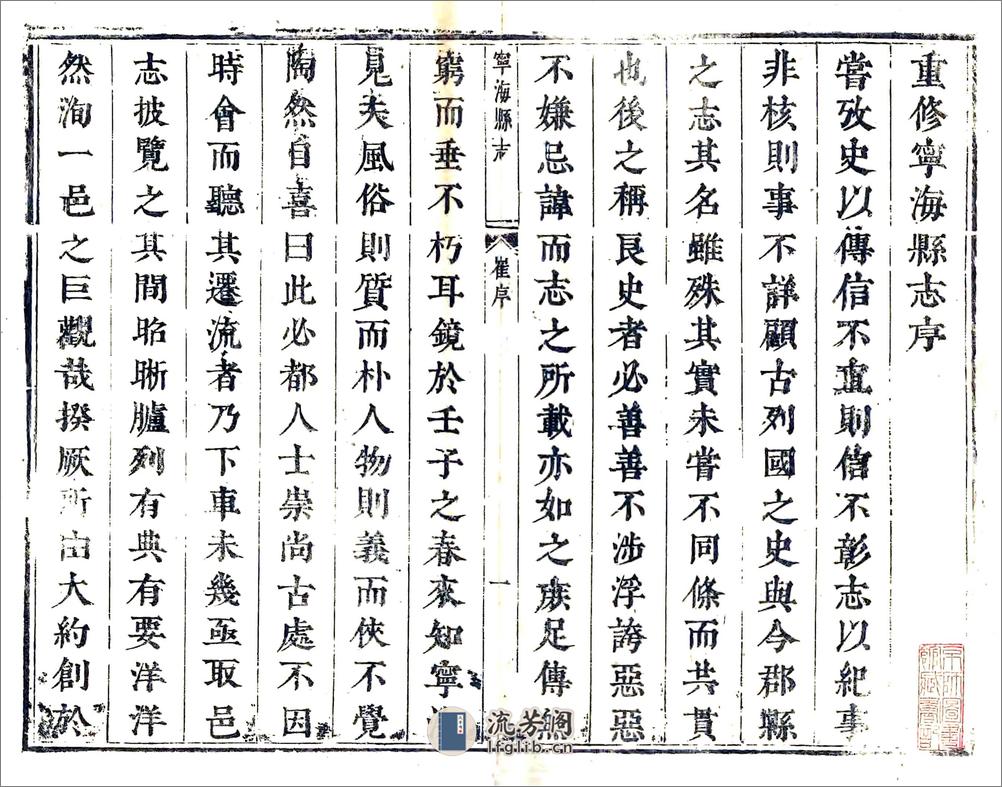 重修寧海縣志序
嘗攷史以傳信不直則信不彰志以紀事
非核則事不詳顧古列國之史與今郡縣
之志其名雖殊其實未嘗不同條而共貫
也後之稱良史者必善善不涉浮誇惡惡
不嫌忌諱而志之所載亦如之庶足傳無
寧海縣志
崔序
一
窮而垂不朽耳鏡於壬子之春來知寧海
見夫風俗則質而朴人物則義而俠不覺
陶然自喜曰此必都人士崇尚古處不因
時會而聽其遷流者乃下車未幾亟取邑
志披覽之其間昭晰臚列有典有要洋洋
然洵一邑之巨觀哉揆厥所由大約創於
流芳閣
lfglib.cn